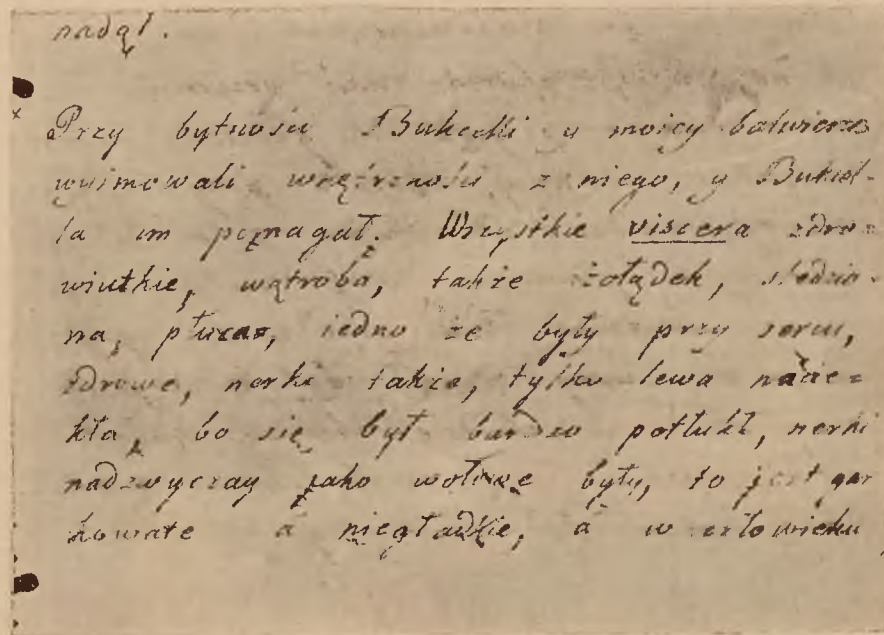 nadął.
Przy bytnosci Bukcelli y moiey balwierze
wyimowali wnętrznosci z niego, y Bukcel-
la im pomagał. Wszystkie viscera zdro-
wiutkie, wątroba, także żołądek, sledzio-
na, płuca, iedno że były przy sercu,
zdrowe, nerki także, tylko lewa nacie-
kła, bo się był bardzo potłukł, nerki
nadzwyczay jako wołowe były, to jest gar
kowate a niegładkie, a w człowieku